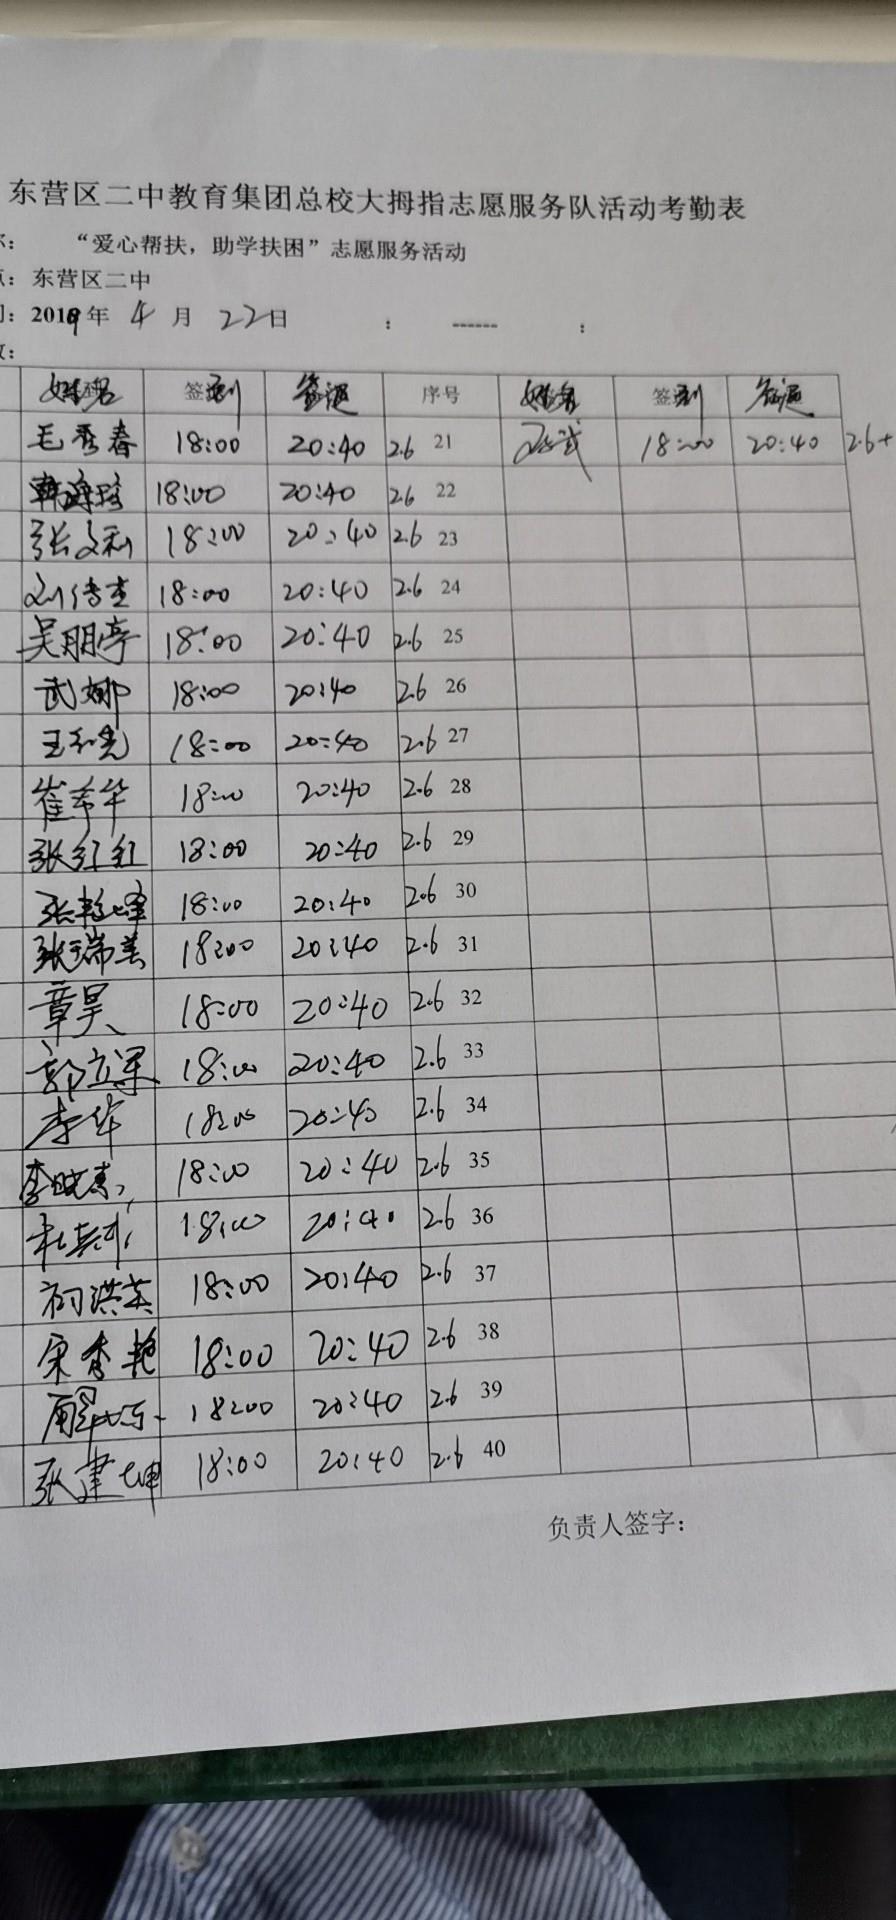 东营区二中教育集团总校大拇指志愿服务队活动考勤表
“爱心帮扶，助学扶困”志愿服务活动
点：东营区二中
2019年 4月 22日 : ------ :
姓名 签到 签退 序号 姓名 签到 签退
毛秀春 18:00 20:40 2.6 21 18:00 20:40 2.6+
韩海珍 18:00 20:40 2.6 22
张文利 18:00 20:40 2.6 23
刘传吉 18:00 20:40 2.6 24
吴朋亭 18:00 20:40 2.6 25
武娜 18:00 20:40 2.6 26
18:00 20:40 2.6 27
崔秀华 18:00 20:40 2.6 28
张红红 18:00 20:40 2.6 29
张艳峰 18:00 20:40 2.6 30
张瑞美 18:00 20:40 2.6 31
章昊 18:00 20:40 2.6 32
郭立军 18:00 20:40 2.6 33
李华 18:00 20:40 2.6 34
李晓 18:00 20:40 2.6 35
18:00 20:40 2.6 36
祠洪英 18:00 20:40 2.6 37
宋香艳 18:00 20:40 2.6 38
18:00 20:40 2.6 39
张建坤 18:00 20:40 2.6 40
负责人签字：